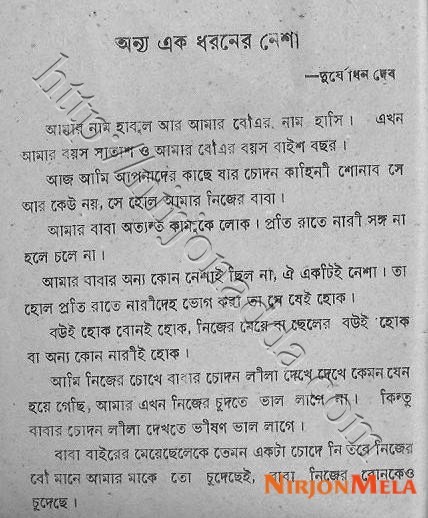 অন্য এক ধরনের নেশা
—দুর্যোধন দেব
আমার নাম হাবুল আর আমার বৌএর নাম হাসি। এখন
আমার বয়স সাতাশ ও আমার বৌএর বয়স বাইশ বছর।
আজ আমি আপনাদের কাছে যার চোদন কাহিনী শোনাব সে
আর কেউ নয়, সে হোল আমার নিজের বাবা।
আমার বাবা অত্যন্ত কামুকে লোক। প্রতি রাতে নারী সঙ্গ না
হলে চলে না।
আমার বাবার অন্য কোন নেশাই ছিল না, ঐ একটিই নেশা। তা
হোল প্রতি রাতে নারীদেহ ভোগ করা তা সে যেই হোক।
বউই হোক বোনই হোক, নিজের মেয়ে বা ছেলের বউই হোক
বা অন্য কোন নারীই হোক।
আমি নিজের চোখে বাবার চোদন লীলা দেখে দেখে কেমন যেন
হয়ে গেছি, আমার এখন নিজের চুদতে ভাল লাগে না। কিন্তু
বাবার চোদন লীলা দেখতে ভীষণ ভাল লাগে।
বাবা বাইরের মেয়েছেলেকে তেমন একটা চোদে নি তবে নিজের
বৌ মানে আমার মাকে তো চুদেছেই, বাবা নিজের বোনকেও
চুদেছে।
NIRJONMELA